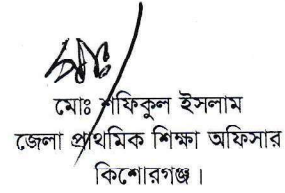 মোঃ শফিকুল ইসলাম
জেলা প্রাথমিক শিক্ষা অফিসার
কিশোরগঞ্জ।